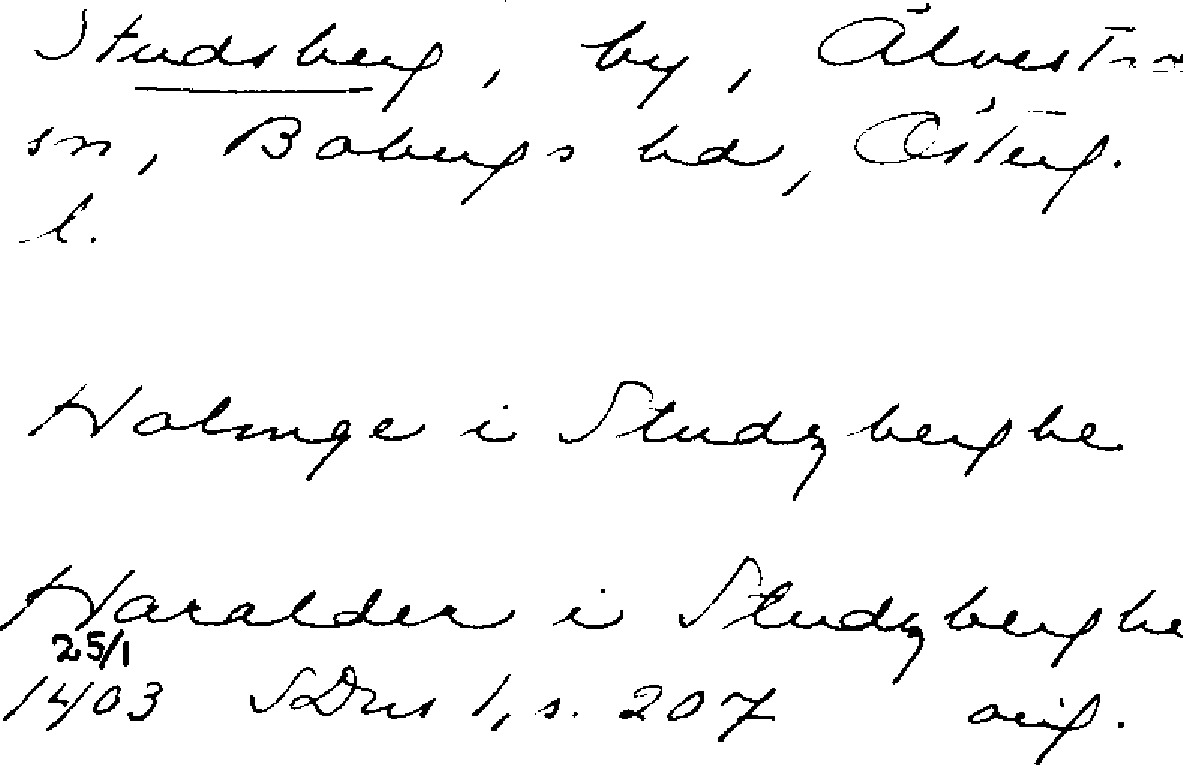 Studsberg, by, Älvestads
sn, Bobergs hd, Österg.
l.
Holmge i Studzberghe
Haralder i Studzberghe
25/1
1403 SDns 1, s. 207 orig.